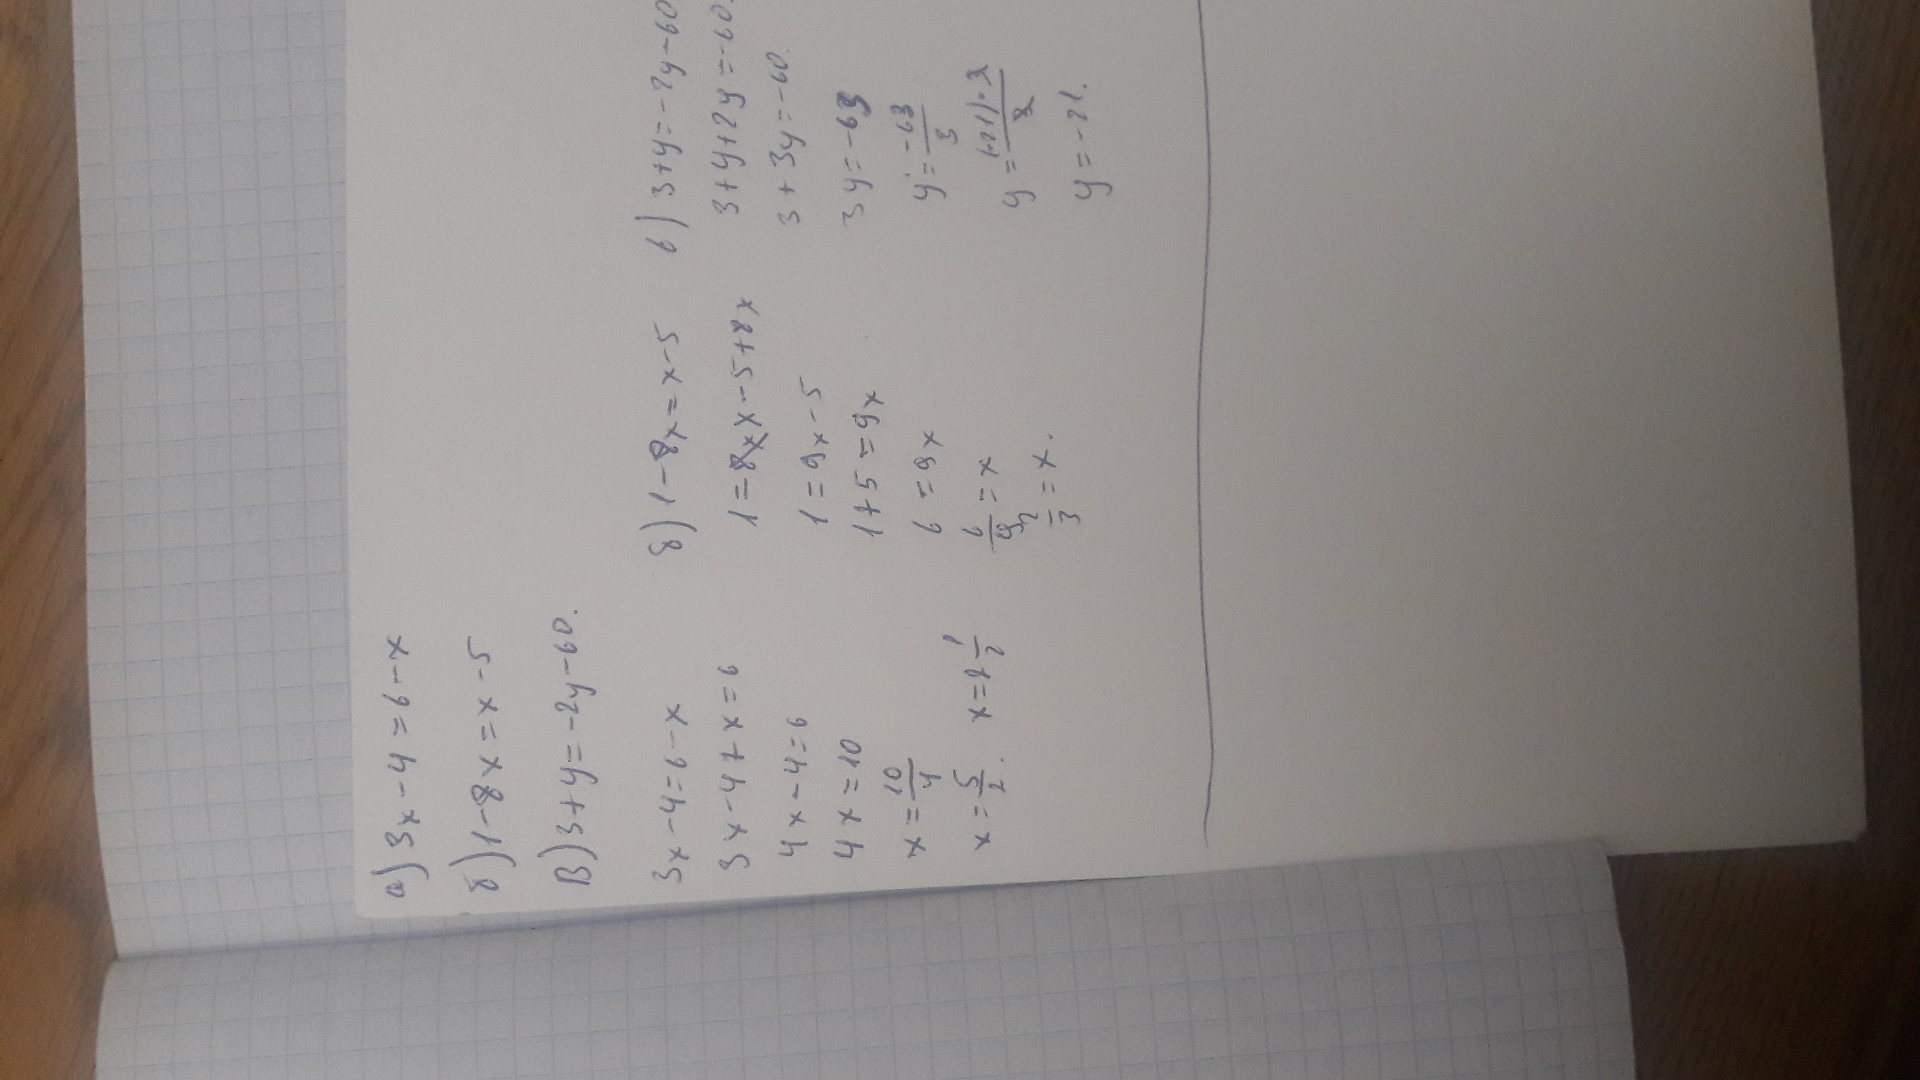 а) 3x - 4 = 6 - x
б) 1 - 8x = x - 5
в) 3 + y = -2y - 60.
3x - 4 = 6 - x
3x - 4 + x = 6
4x - 4 = 6
4x = 10
x = 10/4
x = 5/2. x = 2 1/2
б) 1 - 8x = x - 5
1 = x - 5 + 8x
1 = 9x - 5
1 + 5 = 9x
6 = 9x
6/9 = x
2/3 = x.
в) 3 + y = -2y - 60
3 + y + 2y = -60.
3 + 3y = -60.
3y = -63
y = -63/3
y = (-21)·3/3
y = -21.